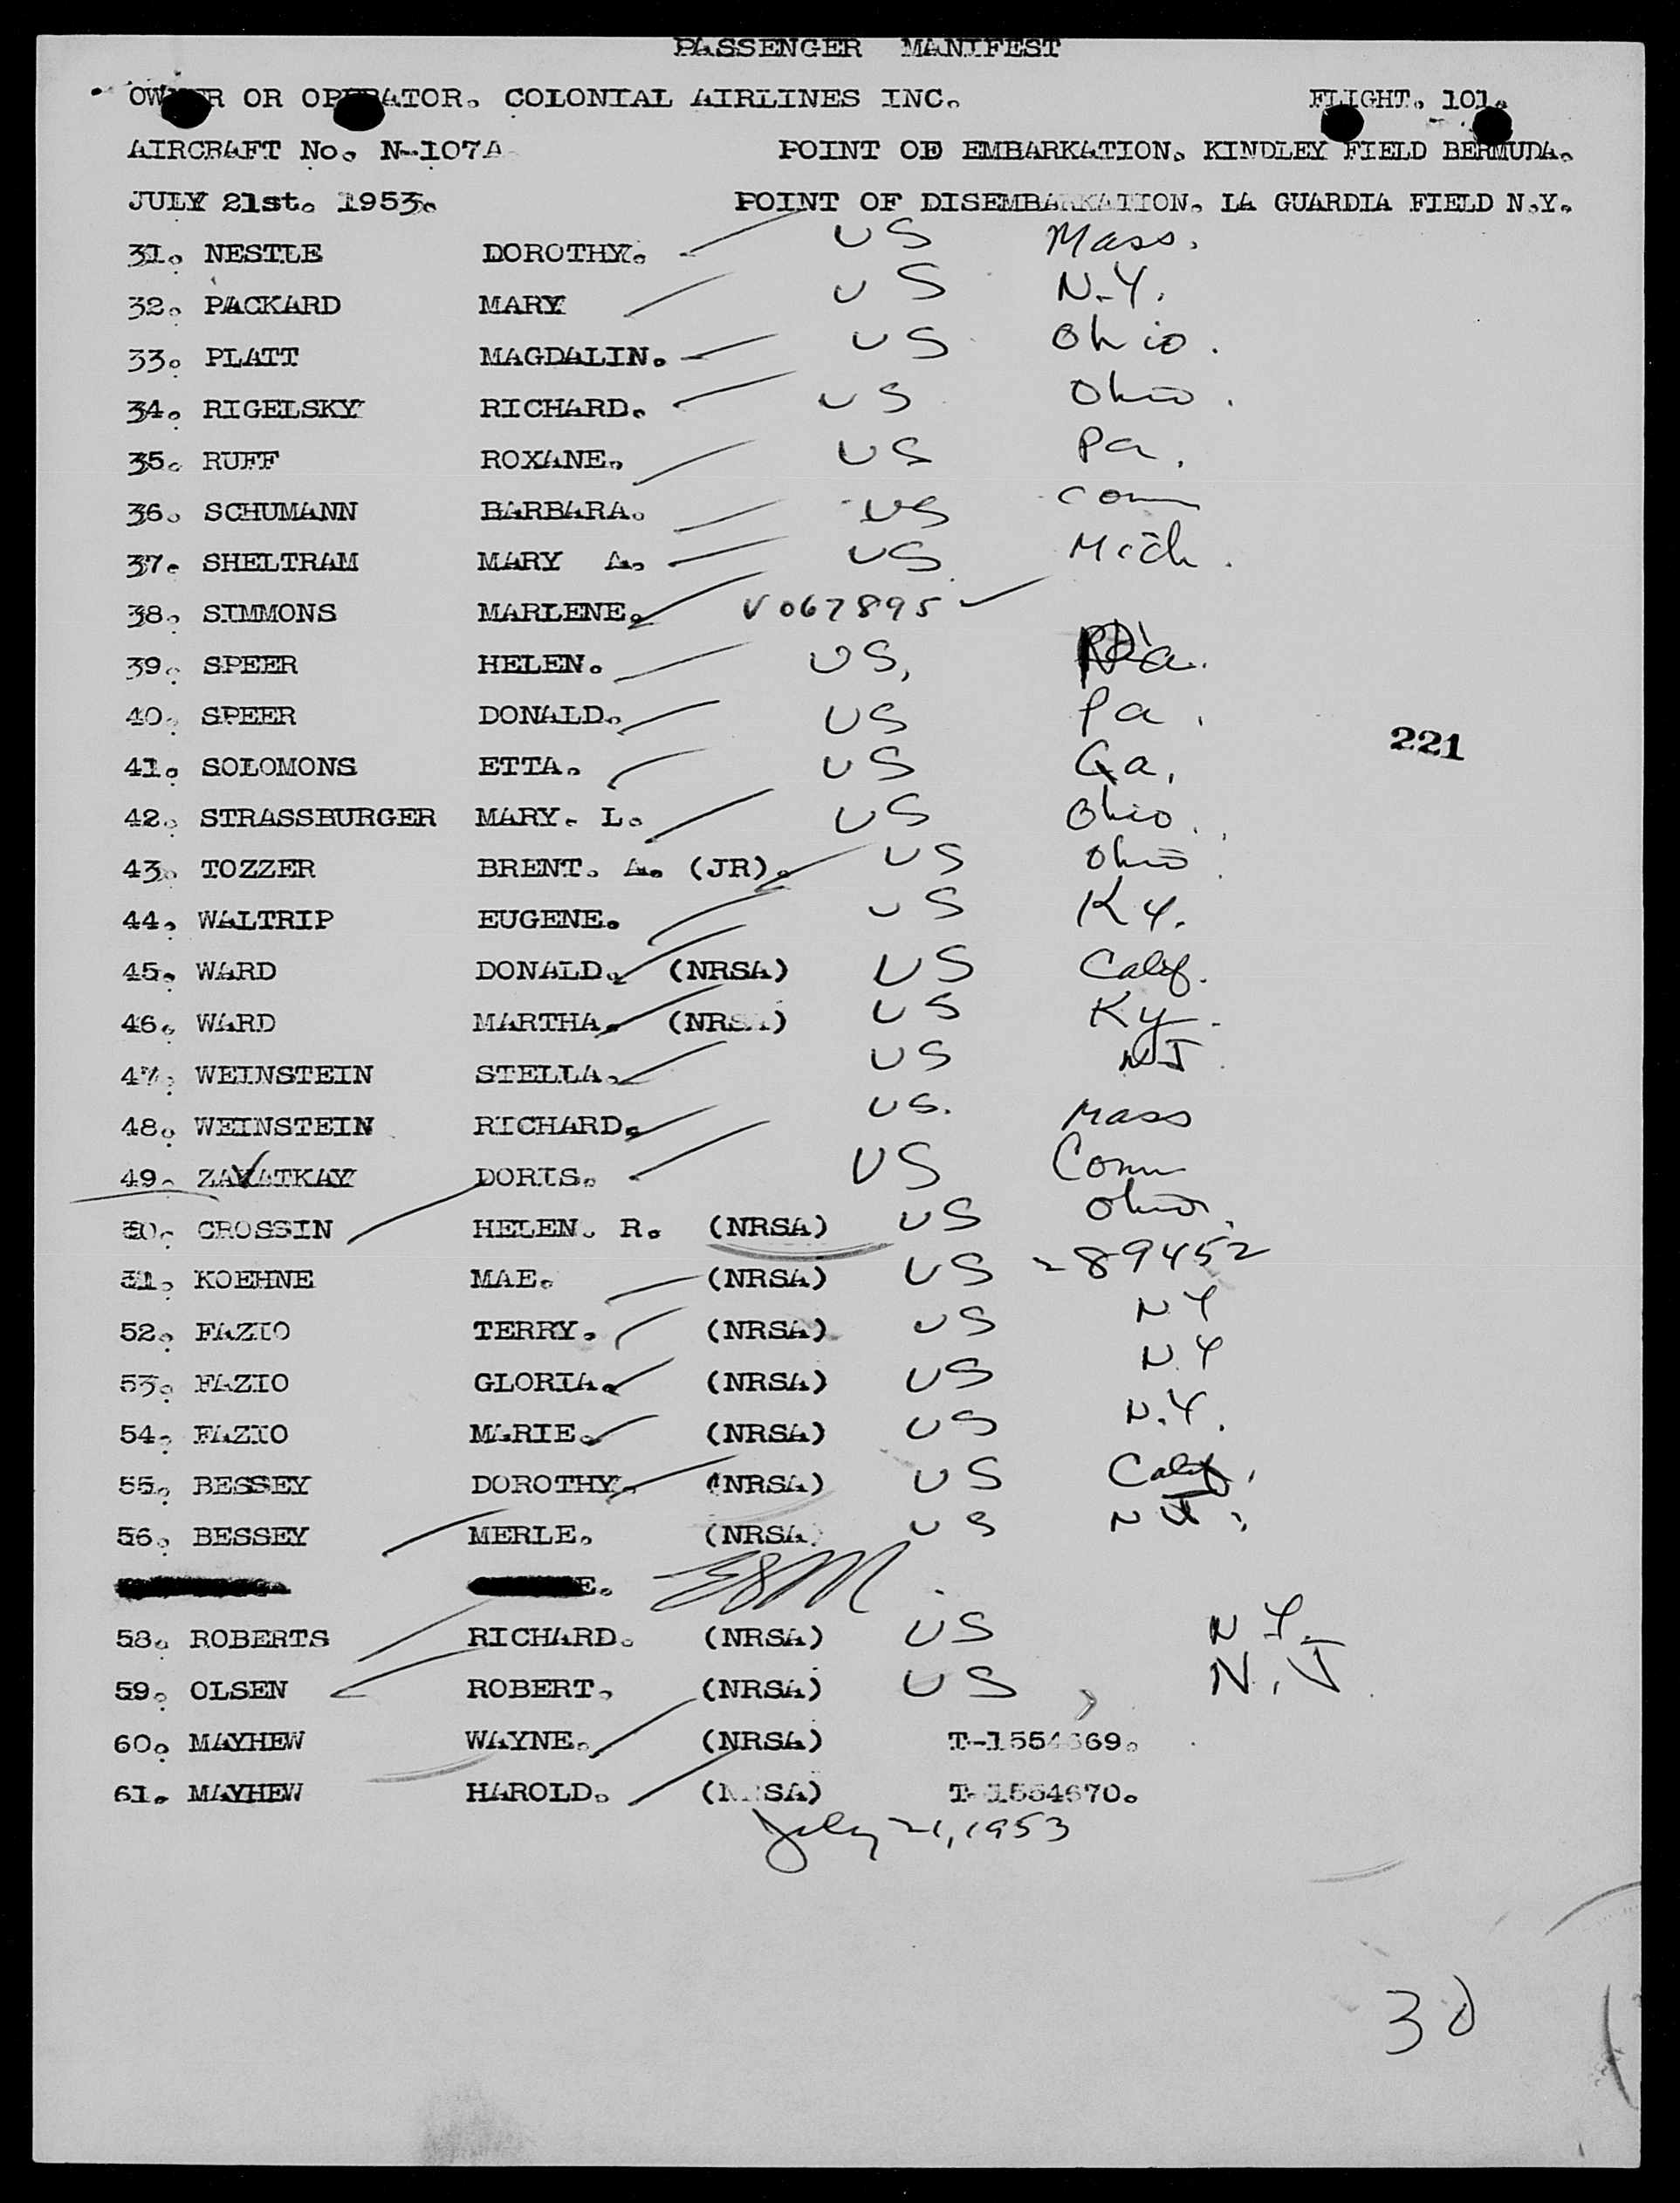 PASSENGER MANIFEST
OWNER OR OPERATOR. COLONIAL AIRLINES INC. FLIGHT. 101.
AIRCRAFT No. N-107A POINT OD EMBARKATION. KINDLEY FIELD BERMUDA.
JULY 21st. 1953. POINT OF DISEMBARKATION. LA GUARDIA FIELD N.Y.
31. NESTLE DOROTHY. US Mass.
32. PACKARD MARY US N.Y.
33. PLATT MAGDALIN. US Ohio.
34. RIGELSKY RICHARD. US Ohio.
35. RUFF ROXANE. US Pa.
36. SCHUMANN BARBARA. US Conn
37. SHELTRAM MARY A. US Mich.
38. SIMMONS MARLENE. V067895
39. SPEER HELEN. US, Pa.
40. SPEER DONALD. US Pa.
221
41. SOLOMONS ETTA. US Ga.
42. STRASSBURGER MARY. L. US Ohio.
43. TOZZER BRENT. A. (JR). US Ohio
44. WALTRIP EUGENE. US Ky.
45. WARD DONALD. (NRSA) US Calif.
46. WARD MARTHA. (NRSA) US Ky.
47. WEINSTEIN STELLA. US NJ
48. WEINSTEIN RICHARD. US. Mass
49. ZAVATKAY DORIS. US Conn
50. CROSSIN HELEN. R. (NRSA) US Ohio.
51. KOEHNE MAE. (NRSA) US 289452
52. FAZIO TERRY. (NRSA) US NY
53. FAZIO GLORIA. (NRSA) US N.Y
54. FAZIO MARIE. (NRSA) US N.Y.
55. BESSEY DOROTHY. (NRSA) US Calif.
56. BESSEY MERLE. (NRSA) US NJ.
E.
58. ROBERTS RICHARD. (NRSA) US N.Y.
59. OLSEN ROBERT. (NRSA) US N.J
60. MAYHEW WAYNE. (NRSA) T-1554669.
61. MAYHEW HAROLD. (NRSA) T-1554670.
July 21, 1953
30